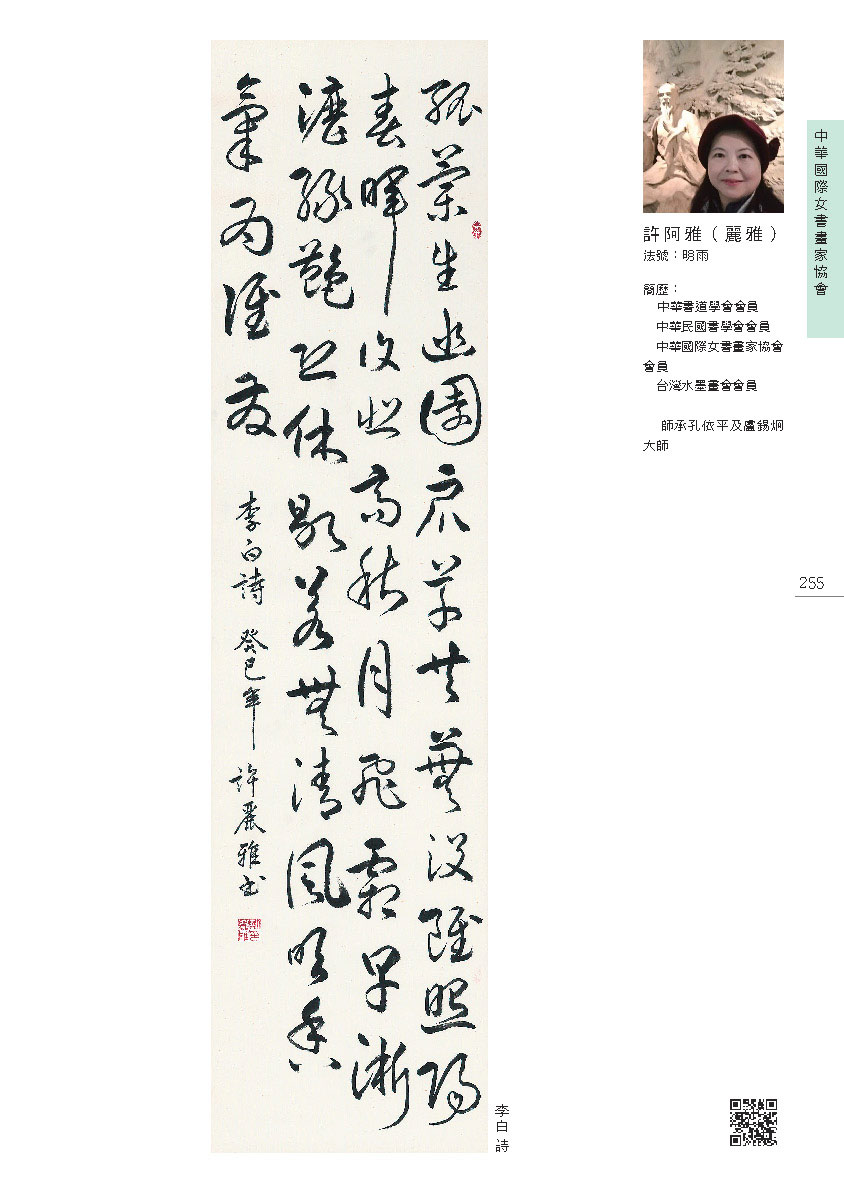 中華國際女書畫家協會
許阿雅（麗雅）
法號：明雨
簡歷：
中華書道學會會員
中華民國書學會會員
中華國際女書畫家協會
會員
台灣水墨畫會會員
師承孔依平及盧錫炯
大師
255
孤蘭生幽園眾草共蕪沒雖照陽
春暉復悲高秋月飛霜早淅
瀝綠艷恐休歇若無清風吹香
氣為誰發
李白詩 癸巳年 許麗雅書
李白詩